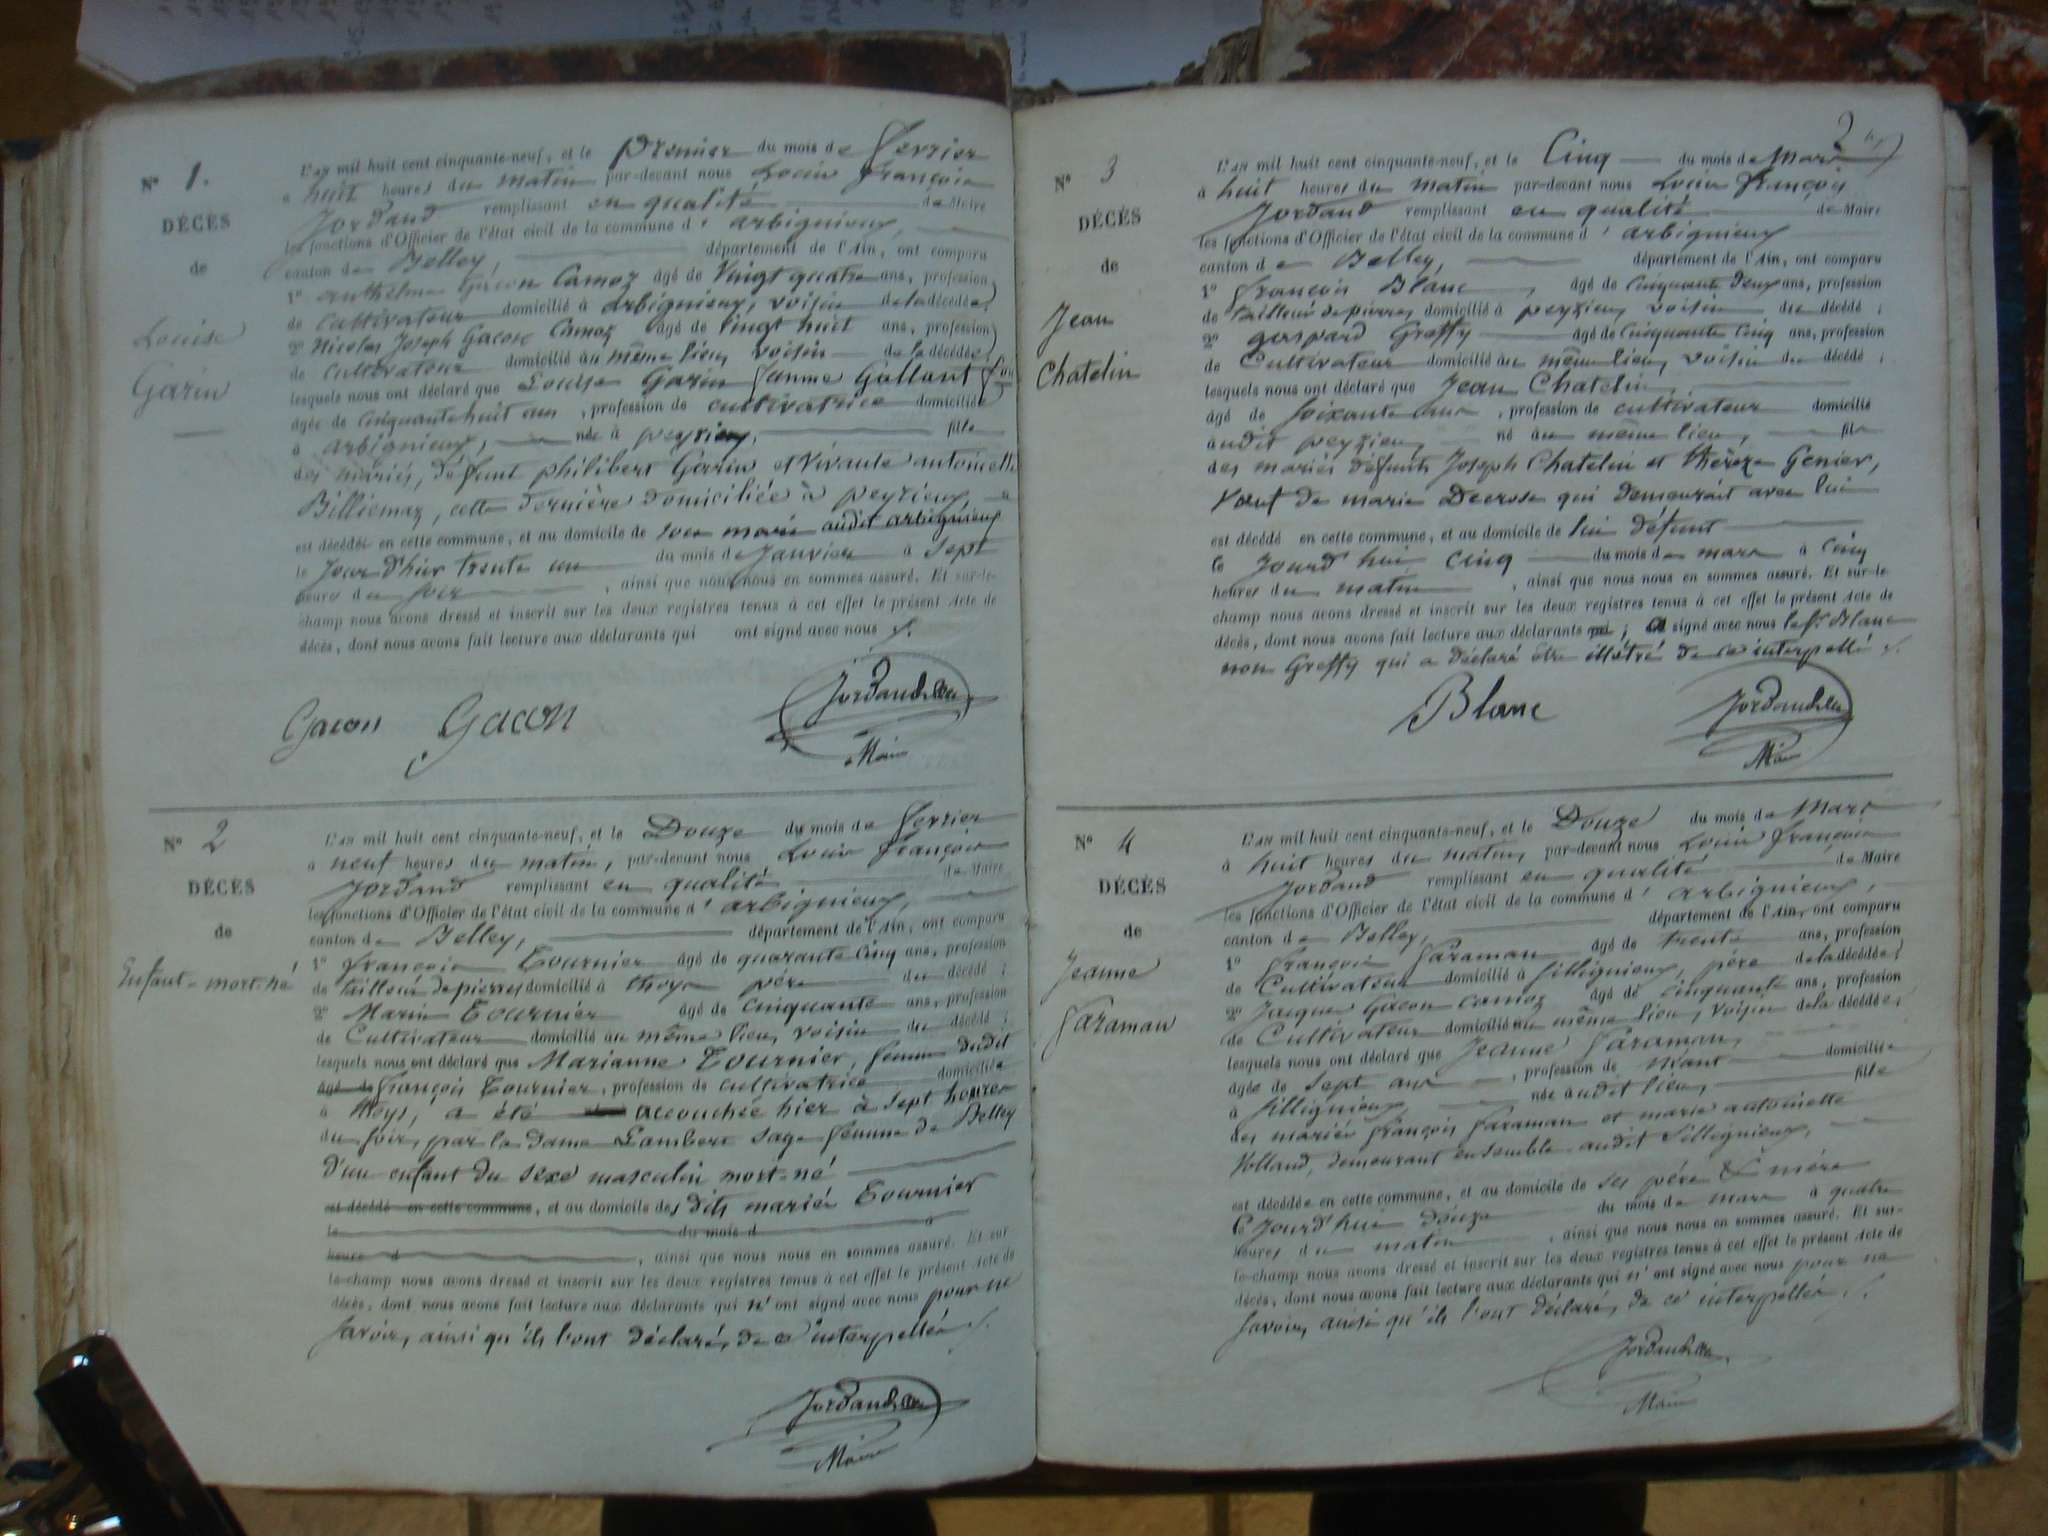 N° 1.
DÉCÈS
de
Louise
Garin
L'AN mil huit cent cinquante-neuf, et le Premier du mois de fevrier
à huit heures du matin par-devant nous Louis françois
Jordand remplissant en qualité de Maire
les fonctions d'Officier de l'état civil de la commune d' arbignieux,
canton de Belley, département de l'Ain, ont comparu
1° anthelme Gacon Camoz âgé de vingt quatre ans, profession
de cultivateur domicilié à arbignieux, voisin de la décédée;
2° Nicolas Joseph Gacon Camoz âgé de vingt huit ans, profession
de cultivateur domicilié au même lieu, voisin de la décédée;
lesquels nous ont déclaré que Louise Garin femme Gallant
âgée de cinquante huit ans, profession de cultivatrice domiciliée
à arbignieux, née à peyzieu, fille
des mariés, défunt philibert Garin et vivante antoinette
Billiemaz, cette dernière domiciliée à peyzieux,
est décédée en cette commune, et au domicile de son mari audit arbignieux
le Jour d'hier trente un du mois de Janvier à sept
heures du soir, ainsi que nous nous en sommes assuré. Et sur-le-
champ nous avons dressé et inscrit sur les deux registres tenus à cet effet le présent Acte de
décès, dont nous avons fait lecture aux déclarants qui ont signé avec nous
Gacon Gacon Jordand
Maire
N° 2
DÉCÈS
de
Enfant-mort-né
L'AN mil huit cent cinquante-neuf, et le Douze du mois de fevrier
à neuf heures du matin, par-devant nous Louis françois
Jordand remplissant en qualité de Maire
les fonctions d'Officier de l'état civil de la commune d' arbignieux,
canton de Belley, département de l'Ain, ont comparu
1° françois Tournier âgé de quarante cinq ans, profession
de tailleur de pierres domicilié à thoys père du décédé;
2° Marin Tournier âgé de cinquante ans, profession
de Cultivateur domicilié au même lieu, voisin du décédé;
lesquels nous ont déclaré que Marianne Tournier, femme dudit
âgé de françois Tournier, profession de cultivatrice domiciliée
à thoys, a été accouchée hier à sept heures
du soir, par la dame Lambert sage femme de Belley
d'un enfant du sexe masculin mort-né
est décédé en cette commune, et au domicile des dits mariés Tournier
le du mois d à
heure d, ainsi que nous nous en sommes assuré. Et sur-
le-champ nous avons dressé et inscrit sur les deux registres tenus à cet effet le présent Acte de
décès, dont nous avons fait lecture aux déclarants qui n'ont signé avec nous pour ne
savoir, ainsi qu'ils l'ont déclaré, de ce interpellés.
Jordand
Maire
2
N° 3
DÉCÈS
de
Jean
Chatelin
L'AN mil huit cent cinquante-neuf, et le Cinq du mois de Mars
à huit heures du matin par-devant nous Louis françois
Jordand remplissant en qualité de Maire
les fonctions d'Officier de l'état civil de la commune d' arbignieux
canton de Belley, département de l'Ain, ont comparu
1° françois Blanc, âgé de cinquante deux ans, profession
de tailleur de pierres domicilié à peyzieu, voisin du décédé;
2° gaspard Greffy âgé de cinquante cinq ans, profession
de Cultivateur domicilié au même lieu, voisin du décédé;
lesquels nous ont déclaré que Jean Chatelin,
âgé de soixante ans, profession de cultivateur domicilié
audit peyzieu, né au même lieu, fils
des mariés défunts Joseph Chatelin et thérèze Genier,
veuf de marie Decrose qui demeurait avec lui
est décédé en cette commune, et au domicile de lui défunt
le Jourd'hui cinq du mois de mars à cinq
heures du matin, ainsi que nous nous en sommes assuré. Et sur-le-
champ nous avons dressé et inscrit sur les deux registres tenus à cet effet le présent Acte de
décès, dont nous avons fait lecture aux déclarants; a signé avec nous le Sr. Blanc
non Greffy qui a déclaré être illétré de ce interpellé.
Blanc Jordand
Maire
N° 4
DÉCÈS
de
Jeanne
faraman
L'AN mil huit cent cinquante-neuf, et le Douze du mois de Mars
à huit heures du matin, par-devant nous Louis françois
Jordand remplissant en qualité de Maire
les fonctions d'Officier de l'état civil de la commune d' arbignieux,
canton de Belley, département de l'Ain, ont comparu
1° françois faraman âgé de trente ans, profession
de Cultivateur domicilié à sillignieux, père de la décédée;
2° Jacques Gacon camoz âgé de cinquante ans, profession
de Cultivateur domicilié au même lieu, voisin de la décédée;
lesquels nous ont déclaré que Jeanne faraman,
âgée de sept ans, profession de néant domiciliée
à sillignieux née audit lieu, fille
des mariés françois faraman et marie antoinette
Volland, demeurant ensemble audit sillignieux,
est décédée en cette commune, et au domicile de ses père & mère
le Jourd'hui douze du mois de mars à quatre
heures du matin, ainsi que nous nous en sommes assuré. Et sur-
le-champ nous avons dressé et inscrit sur les deux registres tenus à cet effet le présent Acte de
décès, dont nous avons fait lecture aux déclarants qui n'ont signé avec nous pour ne
savoir, ainsi qu'ils l'ont déclaré, de ce interpellés.
Jordand
Maire